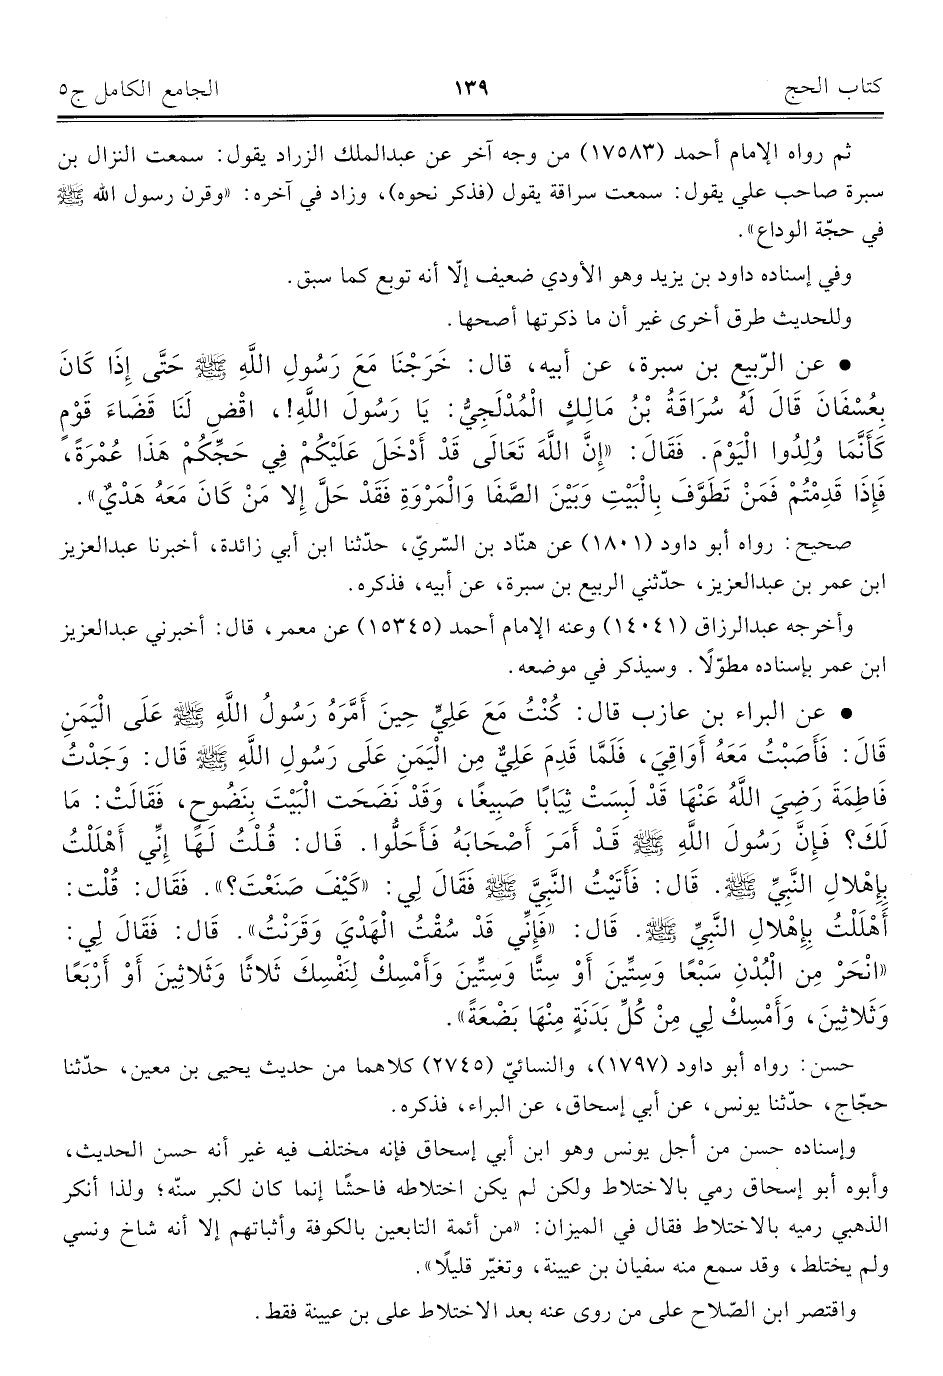 كتاب الحج ١٣٩ الجامع الكامل ج٥
ثم رواه الإمام أحمد (١٧٥٨٣) من وجه آخر عن عبدالملك الزراد يقول: سمعت النزال بن
سبرة صاحب علي يقول: سمعت سراقة يقول (فذكر نحوه)، وزاد في آخره: «وقرن رسول الله ﷺ
في حجّة الوداع».
وفي إسناده داود بن يزيد وهو الأودي ضعيف إلّا أنه توبع كما سبق.
وللحديث طرق أخرى غير أن ما ذكرتها أصحها.
• عن الرّبيع بن سبرة، عن أبيه، قال: خَرَجْنَا مَعَ رَسُولِ اللَّهِ ﷺ حَتَّى إِذَا كَانَ
بِعُسْفَانَ قَالَ لَهُ سُرَاقَةُ بْنُ مَالِكٍ الْمُدْلَجِيُّ: يَا رَسُولَ اللَّهِ!، اقْضِ لَنَا قَضَاءَ قَوْمٍ
كَأَنَّمَا وُلِدُوا الْيَوْمَ. فَقَالَ: «إِنَّ اللَّهَ تَعَالَى قَدْ أَدْخَلَ عَلَيْكُمْ فِي حَجِّكُمْ هَذَا عُمْرَةً،
فَإِذَا قَدِمْتُمْ فَمَنْ تَطَوَّفَ بِالْبَيْتِ وَبَيْنَ الصَّفَا وَالْمَرْوَةِ فَقَدْ حَلَّ إِلا مَنْ كَانَ مَعَهُ هَدْيٌ».
صحيح: رواه أبو داود (١٨٠١) عن هنّاد بن السّريّ، حدّثنا ابن أبي زائدة، أخبرنا عبدالعزيز
ابن عمر بن عبدالعزيز، حدّثني الربيع بن سبرة، عن أبيه، فذكره.
وأخرجه عبدالرزاق (١٤٠٤١) وعنه الإمام أحمد (١٥٣٤٥) عن معمر، قال: أخبرني عبدالعزيز
ابن عمر بإسناده مطوّلًا. وسيذكر في موضعه.
• عن البراء بن عازب قال: كُنْتُ مَعَ عَلِيٍّ حِينَ أَمَّرَهُ رَسُولُ اللَّهِ ﷺ عَلَى الْيَمَنِ
قَالَ: فَأَصَبْتُ مَعَهُ أَوَاقِيَ، فَلَمَّا قَدِمَ عَلِيٌّ مِن الْيَمَنِ عَلَى رَسُولِ اللَّهِ ﷺ قَالَ: وَجَدْتُ
فَاطِمَةَ رَضِيَ اللَّهُ عَنْهَا قَدْ لَبِسَتْ ثِيَابًا صَبِيغًا، وَقَدْ نَضَحَت الْبَيْتَ بِنَضُوحٍ، فَقَالَتْ: مَا
لَكَ؟ فَإِنَّ رَسُولَ اللَّهِ ﷺ قَدْ أَمَرَ أَصْحَابَهُ فَأَحَلُّوا. قَالَ: قُلْتُ لَهَا إِنِّي أَهْلَلْتُ
بِإِهْلالِ النَّبِيِّ ﷺ. قَالَ: فَأَتَيْتُ النَّبِيَّ ﷺ فَقَالَ لِي: «كَيْفَ صَنَعْتَ؟». فَقَالَ: قُلْت:
أَهْلَلْتُ بِإِهْلالِ النَّبِيِّ ﷺ. قَالَ: «فَإِنِّي قَدْ سُقْتُ الْهَدْيَ وَقَرَنْتُ». قَالَ: فَقَالَ لِي:
«انْحَرْ مِن الْبُدْنِ سَبْعًا وَسِتِّينَ أَوْ سِتًّا وَسِتِّينَ وَأَمْسِكْ لِنَفْسِكَ ثَلاثًا وَثَلاثِينَ أَوْ أَرْبَعًا
وَثَلاثِينَ، وَأَمْسِكْ لِي مِنْ كُلِّ بَدَنَةٍ مِنْهَا بَضْعَةً».
حسن: رواه أبو داود (١٧٩٧)، والنسائيّ (٢٧٤٥) كلاهما من حديث يحيى بن معين، حدّثنا
حجّاج، حدّثنا يونس، عن أبي إسحاق، عن البراء، فذكره.
وإسناده حسن من أجل يونس وهو ابن أبي إسحاق فإنه مختلف فيه غير أنه حسن الحديث،
وأبوه أبو إسحاق رمي بالاختلاط ولكن لم يكن اختلاطه فاحشًا إنما كان لكبر سنّه؛ ولذا أنكر
الذهبي رميه بالاختلاط فقال في الميزان: «من أئمة التابعين بالكوفة وأثباتهم إلا أنه شاخ ونسي
ولم يختلط، وقد سمع منه سفيان بن عيينة، وتغيّر قليلًا».
واقتصر ابن الصّلاح على من روى عنه بعد الاختلاط على بن عيينة فقط.